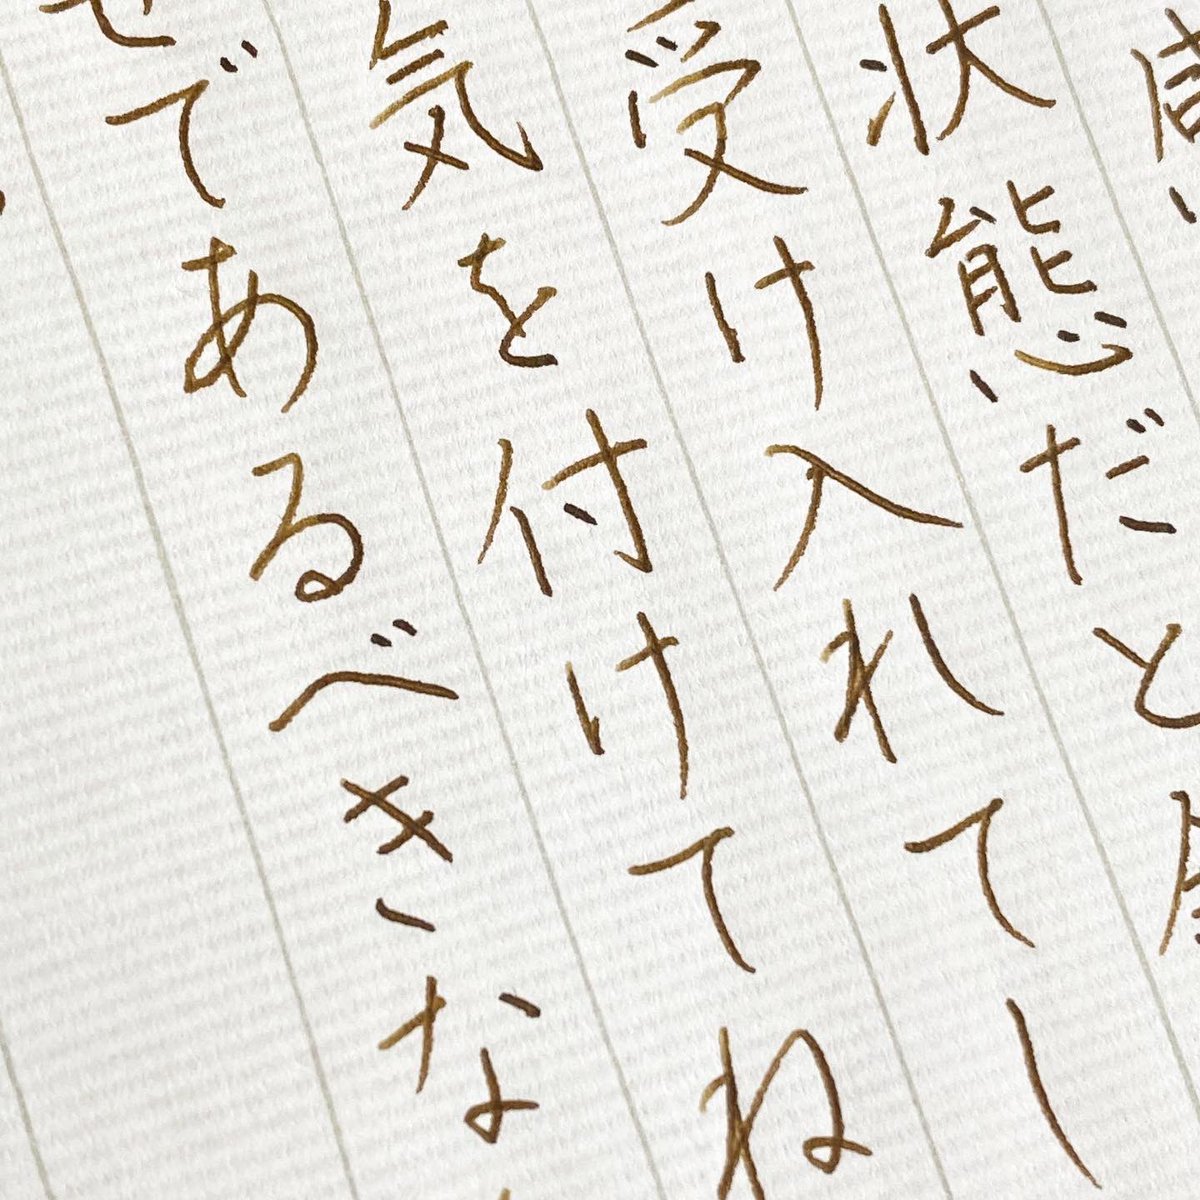 状態だと
受け入れてし
気を付けてね
せであるべきな